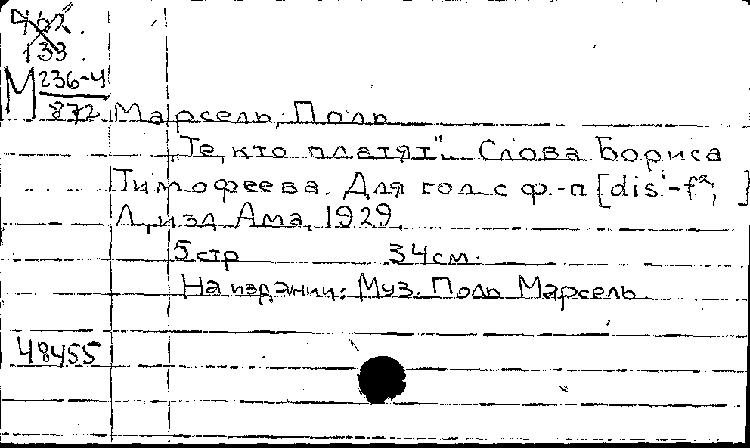 462.
133
М 236-4
872 Марсель, Поль
"Те, кто платят". Слова Бориса
Тимофеева. Для гол с ф.-п [dis¹-f²; ]
Л, изд Ама, 1929.
5 стр 34 см.
На издании: Муз. Поль Марсель
48455